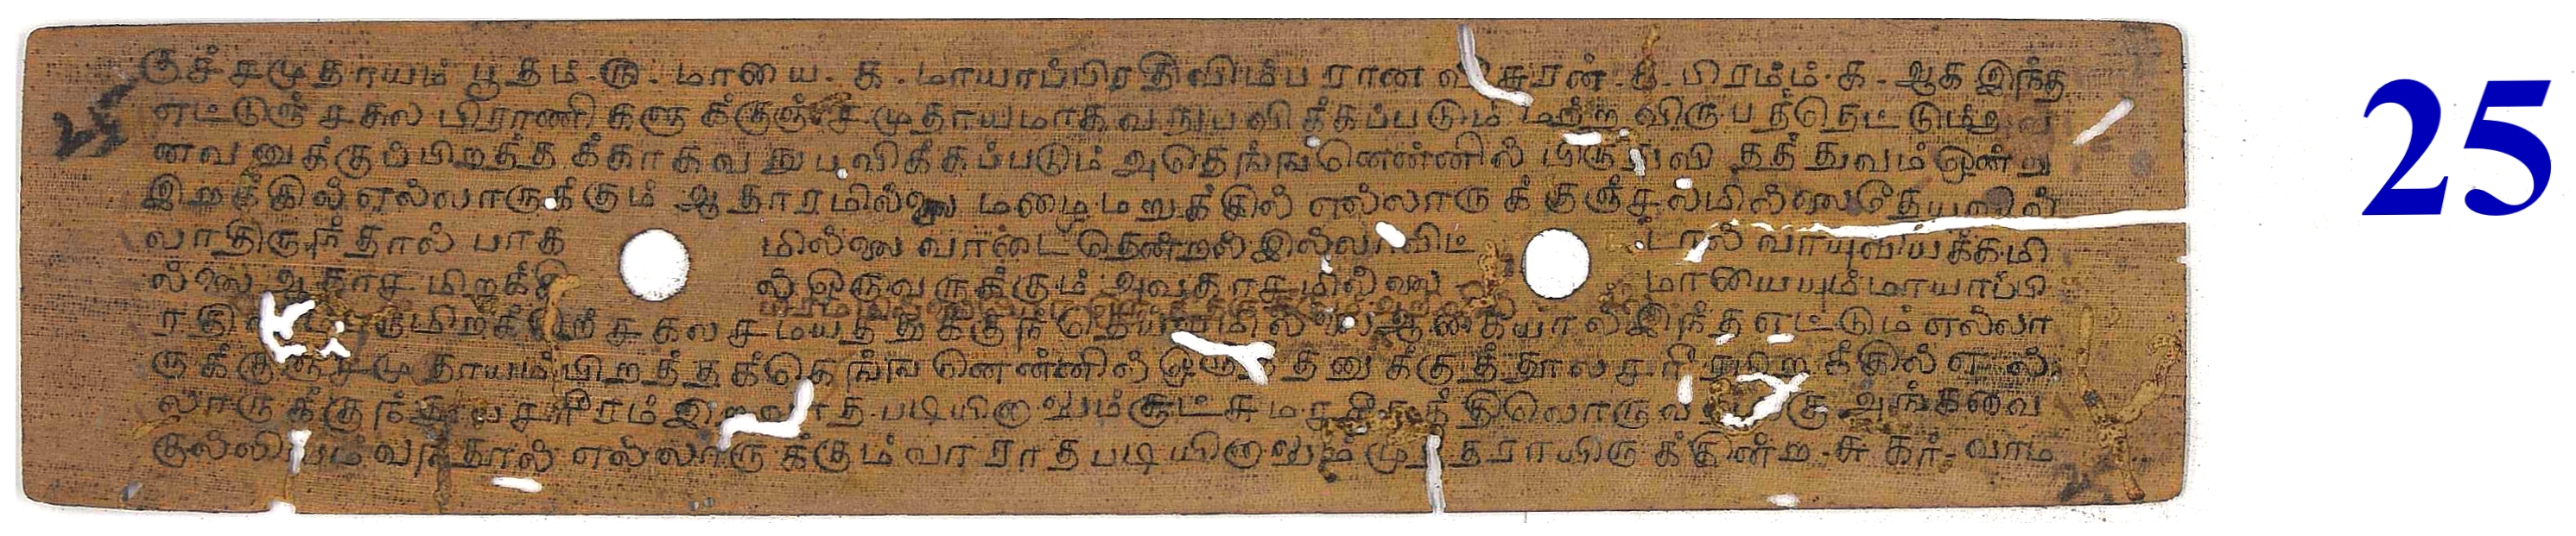 குச்சமுதாயம் பூதம் ௫. மாயை. ௧. மாயாப்பிரதிவிம்பரான ஈசுரன். ௧. பிரம்ம். ௧. ஆக இந்த
எட்டுஞ் சகல பிராணிகளுக்குஞ் சமுதாயமாக வநுபவிக்கப்படும் மற்ற விருபத்தெட்டும்
னவனுக்குப்பிறத்தக்காகவநுபவிக்கப்படும் அதெங்ஙனெண்னில் பிருதுவி தத்துவம் ஒன்று
இறக்கில் எல்லாருக்கும் ஆதாரமில்லை மழைமறுக்கில் எல்லாருக்குஞ்சலமில்லை
வாதிருந்தால் பாக மில்லை வாடை தென்றல் இல்லாவிட் டால் வாயுவியக்கமி
ல்லை ஆகாசமிறக்கி ல் ஒருவருக்கும் அவகாசமில்லை மாயையும்மாயாப்பி
ரதி சகலசமயத்துக்குந் ஆகையால் இந்த எட்டும் எல்லா
ருக்குஞ்சமுதாயம் பிறத்தக்கெங்ஙனெண்னில் ஒருத்தனுக்குத்தூலசரீ க்கில் எல்
லாருக்குந்தூலசரீரம் இறவாதபடியினாலும் சூட்சும அங்கவை
கல்லியம் வந்தால் எல்லாருக்கும் வாராதபடியினாலும் முத்தராயிருக்கின்ற. சுகர். வாம
25
25